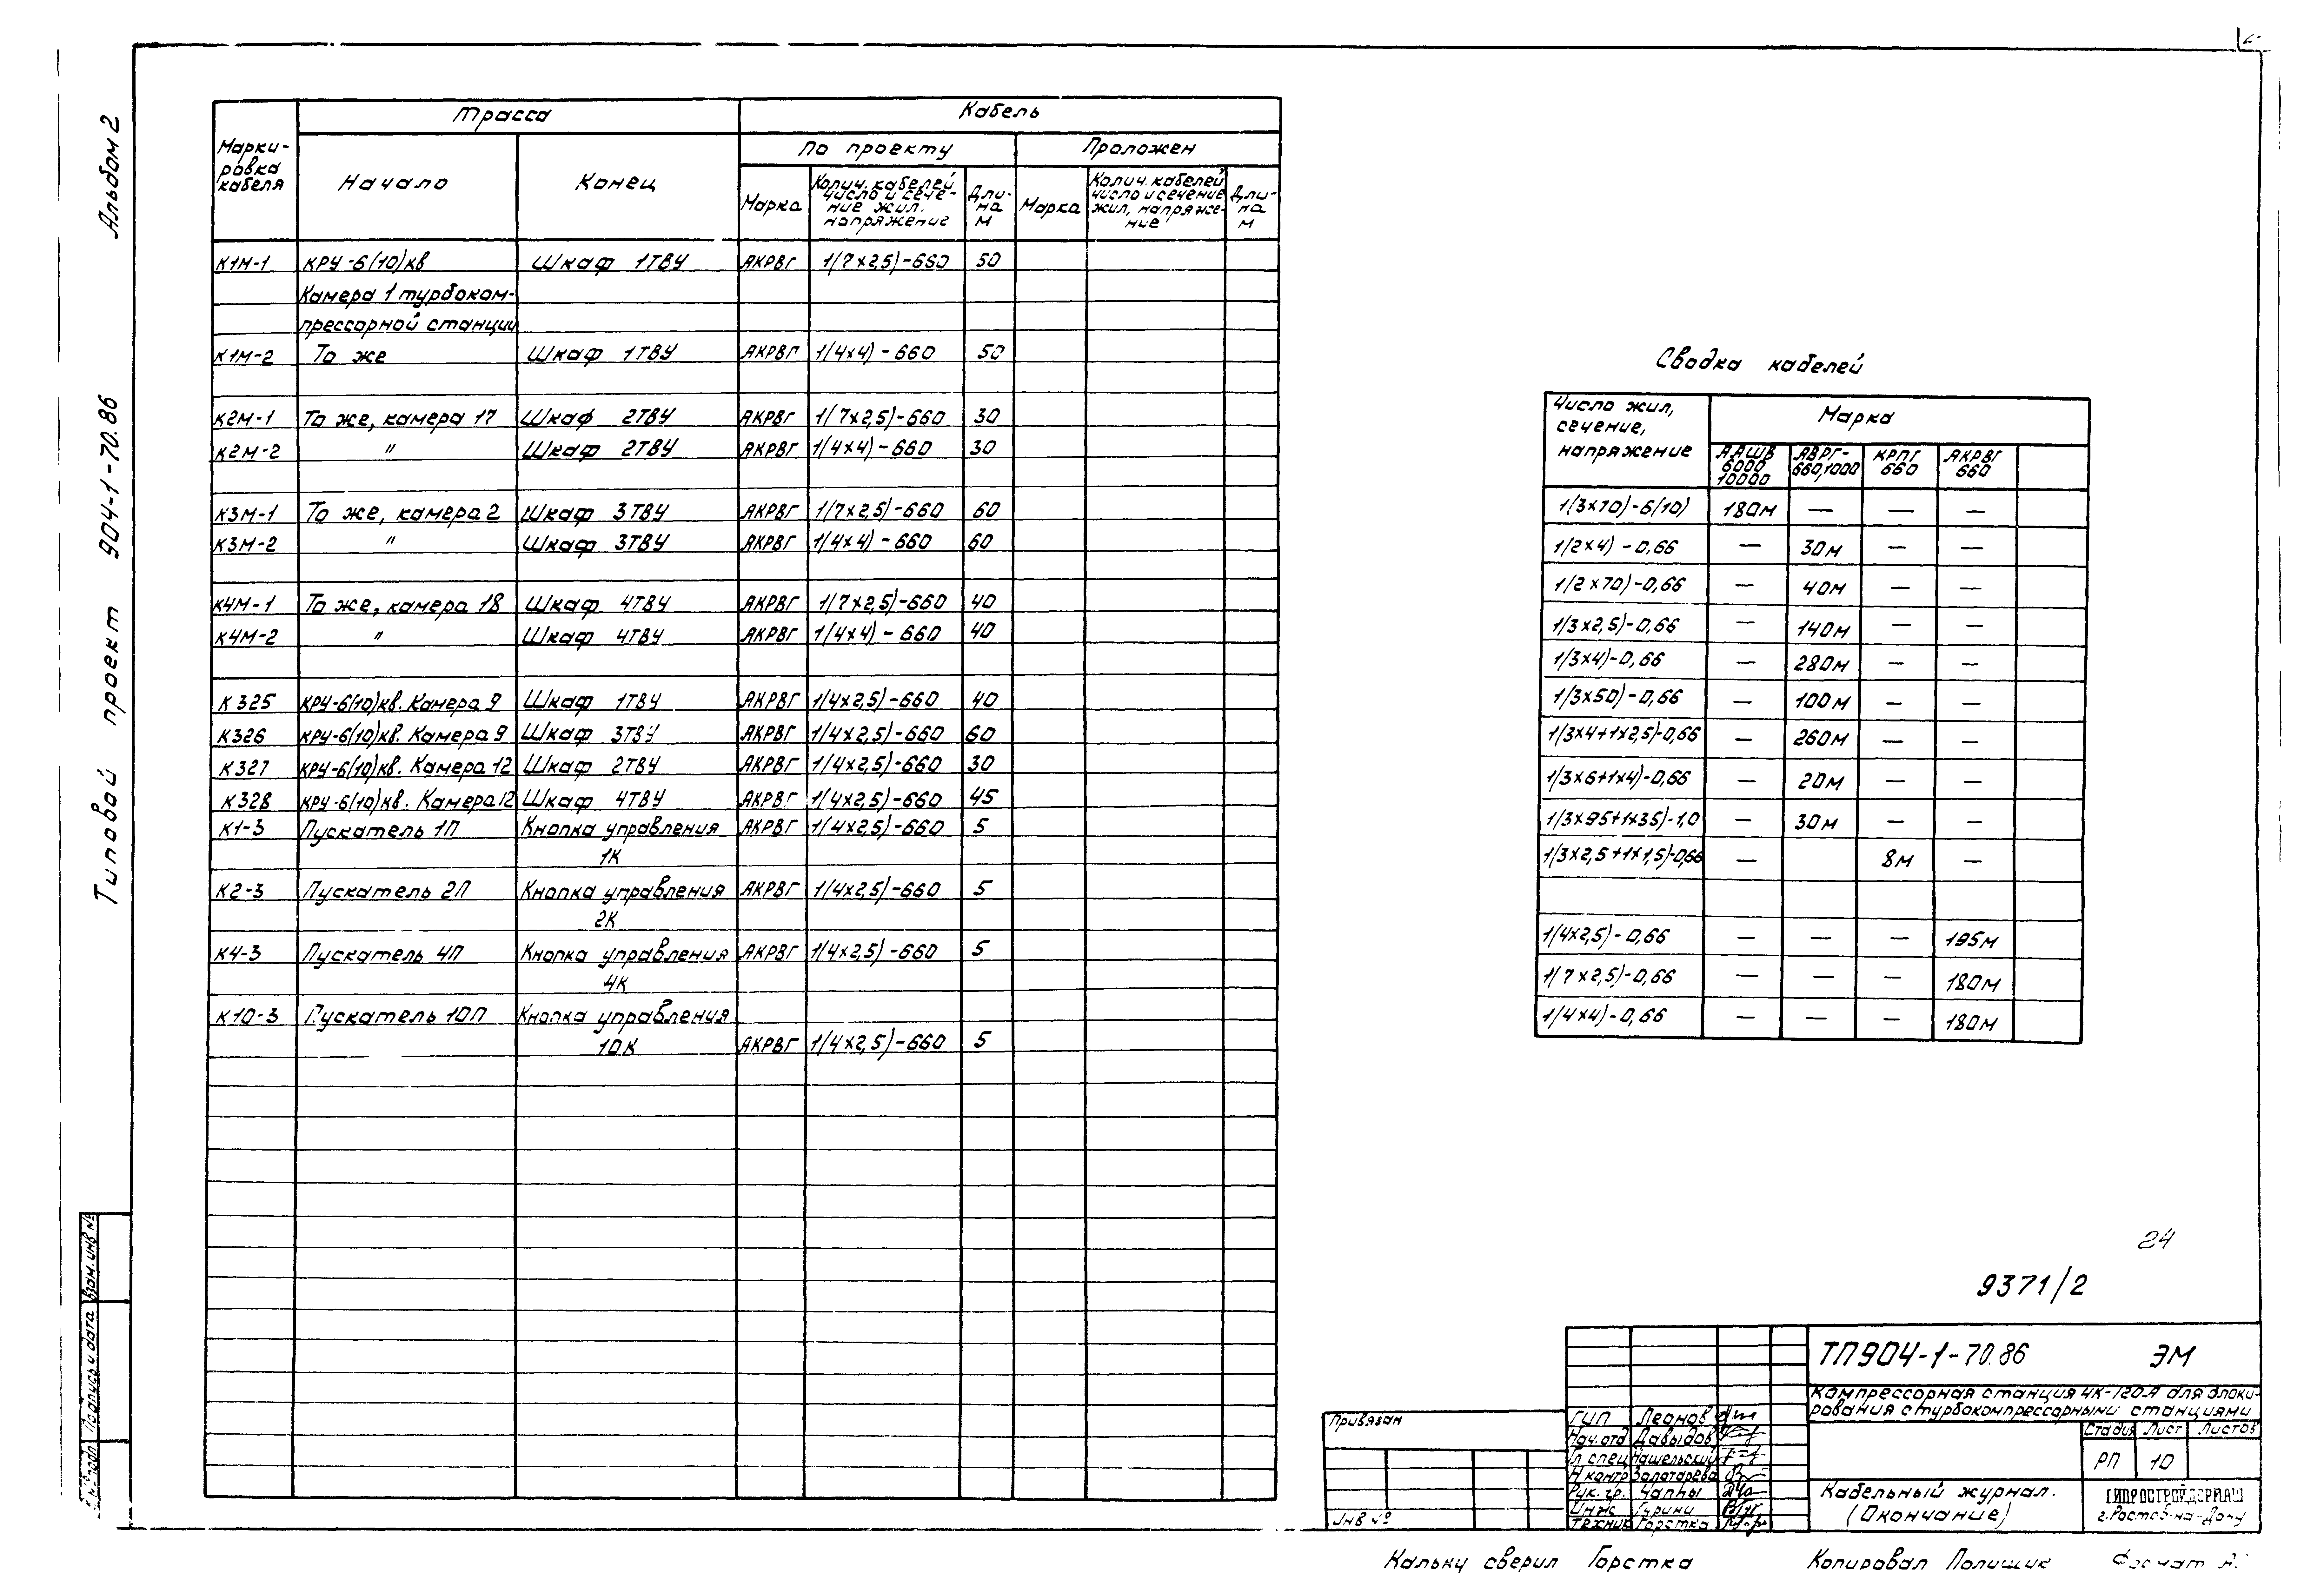 Альбом 2
Типовой проект 904-1-70.86
Марки-
ровка
кабеля
Трасса
Кабель
Начало
Конец
По проекту
Проложен
Марка
Колич. кабелей
число и сече-
ние жил.
напряжение
Дли-
на
м
Марка
Колич. кабелей
число и сечение
жил, напряже-
ние
Дли-
на
м
К1М-1 КРУ-6(10)кв Шкаф 1ТВУ АКРВГ 1(7×2,5)-660 50
Камера 1 турбоком-
прессорной станции
К1М-2 То же Шкаф 1ТВУ АКРВГ 1(4×4)-660 50
К2М-1 То же, камера 17 Шкаф 2ТВУ АКРВГ 1(7×2,5)-660 30
К2М-2 " Шкаф 2ТВУ АКРВГ 1(4×4)-660 30
К3М-1 То же, камера 2 Шкаф 3ТВУ АКРВГ 1(7×2,5)-660 60
К3М-2 " Шкаф 3ТВУ АКРВГ 1(4×4)-660 60
К4М-1 То же, камера 18 Шкаф 4ТВУ АКРВГ 1(7×2,5)-660 40
К4М-2 " Шкаф 4ТВУ АКРВГ 1(4×4)-660 40
К325 КРУ-6(10)кв. Камера 9 Шкаф 1ТВУ АКРВГ 1(4×2,5)-660 40
К326 КРУ-6(10)кв. Камера 9 Шкаф 3ТВУ АКРВГ 1(4×2,5)-660 60
К327 КРУ-6(10)кв. Камера 12 Шкаф 2ТВУ АКРВГ 1(4×2,5)-660 30
К328 КРУ-6(10)кв. Камера 12 Шкаф 4ТВУ АКРВГ 1(4×2,5)-660 45
К1-3 Пускатель 1П Кнопка управления АКРВГ 1(4×2,5)-660 5
1К
К2-3 Пускатель 2П Кнопка управления АКРВГ 1(4×2,5)-660 5
2К
К4-3 Пускатель 4П Кнопка управления АКРВГ 1(4×2,5)-660 5
4К
К10-3 Пускатель 10П Кнопка управления
10К АКРВГ 1(4×2,5)-660 5
Сводка кабелей
Число жил,
сечение,
напряжение
Марка
ААШВ
6000
10000
АВРГ-
660,1000
КРПГ
660
АКРВГ
660
1(3×70)-6(10) 180м — — —
1(2×4)-0,66 — 30м — —
1(2×70)-0,66 — 40м — —
1(3×2,5)-0,66 — 140м — —
1(3×4)-0,66 — 280м — —
1(3×50)-0,66 — 100м — —
1(3×4+1×2,5)-0,66 — 260м — —
1(3×6+1×4)-0,66 — 20м — —
1(3×95+1×35)-1,0 — 30м — —
1(3×2,5+1×1,5)-0,66 — 8м —
1(4×2,5)-0,66 — — — 195м
1(7×2,5)-0,66 — — — 180м
1(4×4)-0,66 — — — 180м
24
9371/2
ТП904-1-70.86 ЭМ
Компрессорная станция 4К-120А для блоки-
рования с турбокомпрессорными станциями
Стадия Лист Листов
РП 10
Кабельный журнал.
(Окончание)
ГИПРОСТРОЙДОРМАШ
г.Ростов-на-Дону
Привязан
Инв №
ГИП Леонов
Нач.отд Давыдов
Гл спец Нашельский
Н контр Золотарева
Рук. гр. Чапны
Инж Гурини
Техник Горстка
Взам. инв №
Подпись и дата
№ подл
Кальку сверил Горстка
Копировал Полищик
Формат